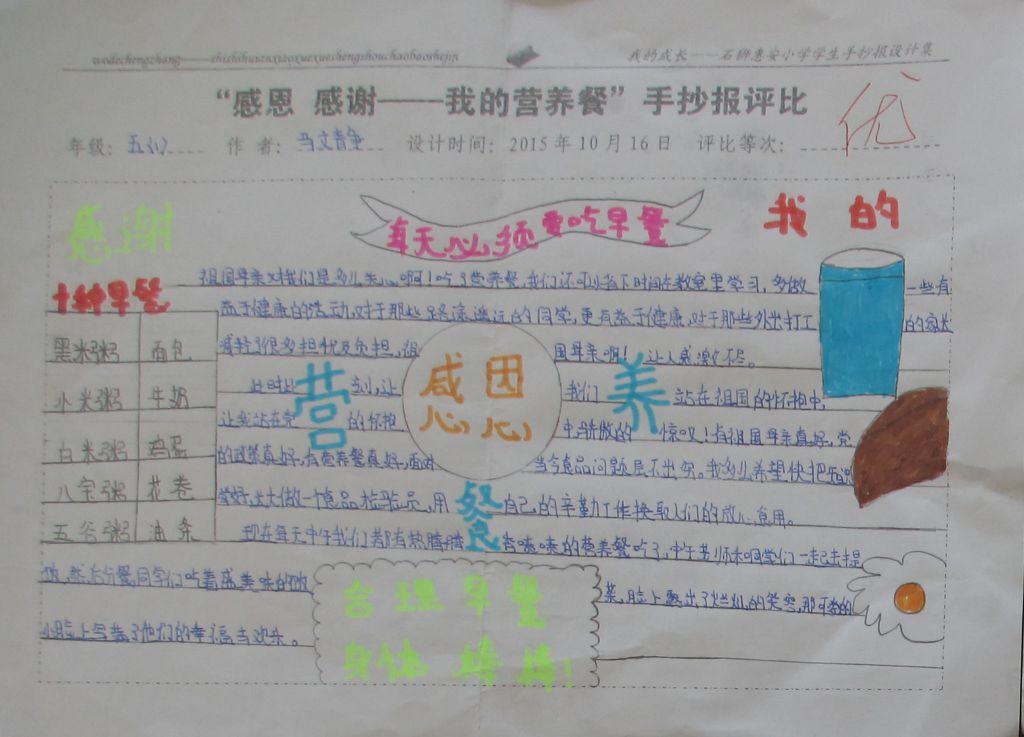 我的成长——石狮惠安小学学生手抄报设计集
“感恩 感谢——我的营养餐”手抄报评比
优
年级：五(1) 作者：马文静 设计时间：2015年10月16日 评比等次：
感谢
每天必须要吃早餐
我的
十种早餐
祖国母亲对我们是多么关心啊！吃了营养餐，我们还可以省下时间在教室里学习，多做一些有
益于健康的活动，对于那些路途遥远的同学，更有益于健康，对于那些外出打工的家长
减轻了很多担忧及负担，祖国母亲啊！让人感激不尽。
黑米粥 面包
小米粥 牛奶
白米粥 鸡蛋
八宝粥 花卷
五谷粥 油条
感恩
营养餐
此时此刻，让我们站在祖国的怀抱中，
让我站在党的怀抱中，骄傲的惊叹！有祖国母亲真好，党
的政策真好，有营养餐真好，面对当今食品问题层不出穷。我多么希望快把
学好，长大做一个食品检验员，用自己的辛勤工作换取人们的放心食用。
现在每天中午我们都有热腾腾香喷喷的营养餐吃了，中午老师和同学们一起去提
饭，然后分餐，同学们吃着美味的饭菜，脸上露出了灿烂的笑容，那可爱的
小脸上写满了他们的幸福与欢乐。
合理早餐
身体棒棒！